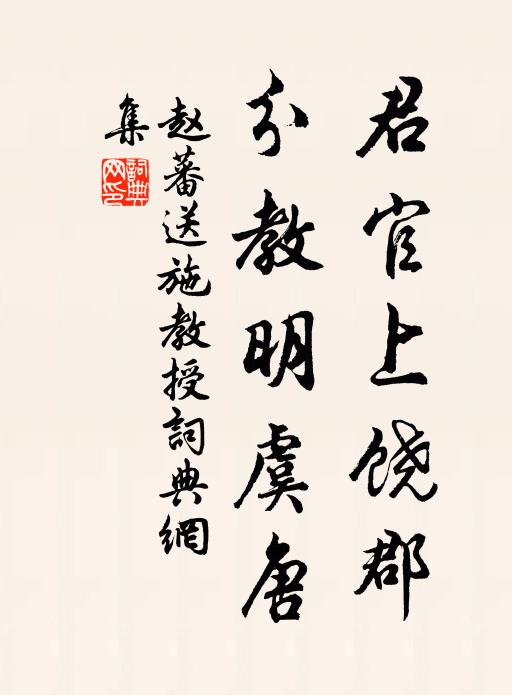 君官上饶郡
分教明虞唐
赵蕃送施教授詞典網
集
詞典网印